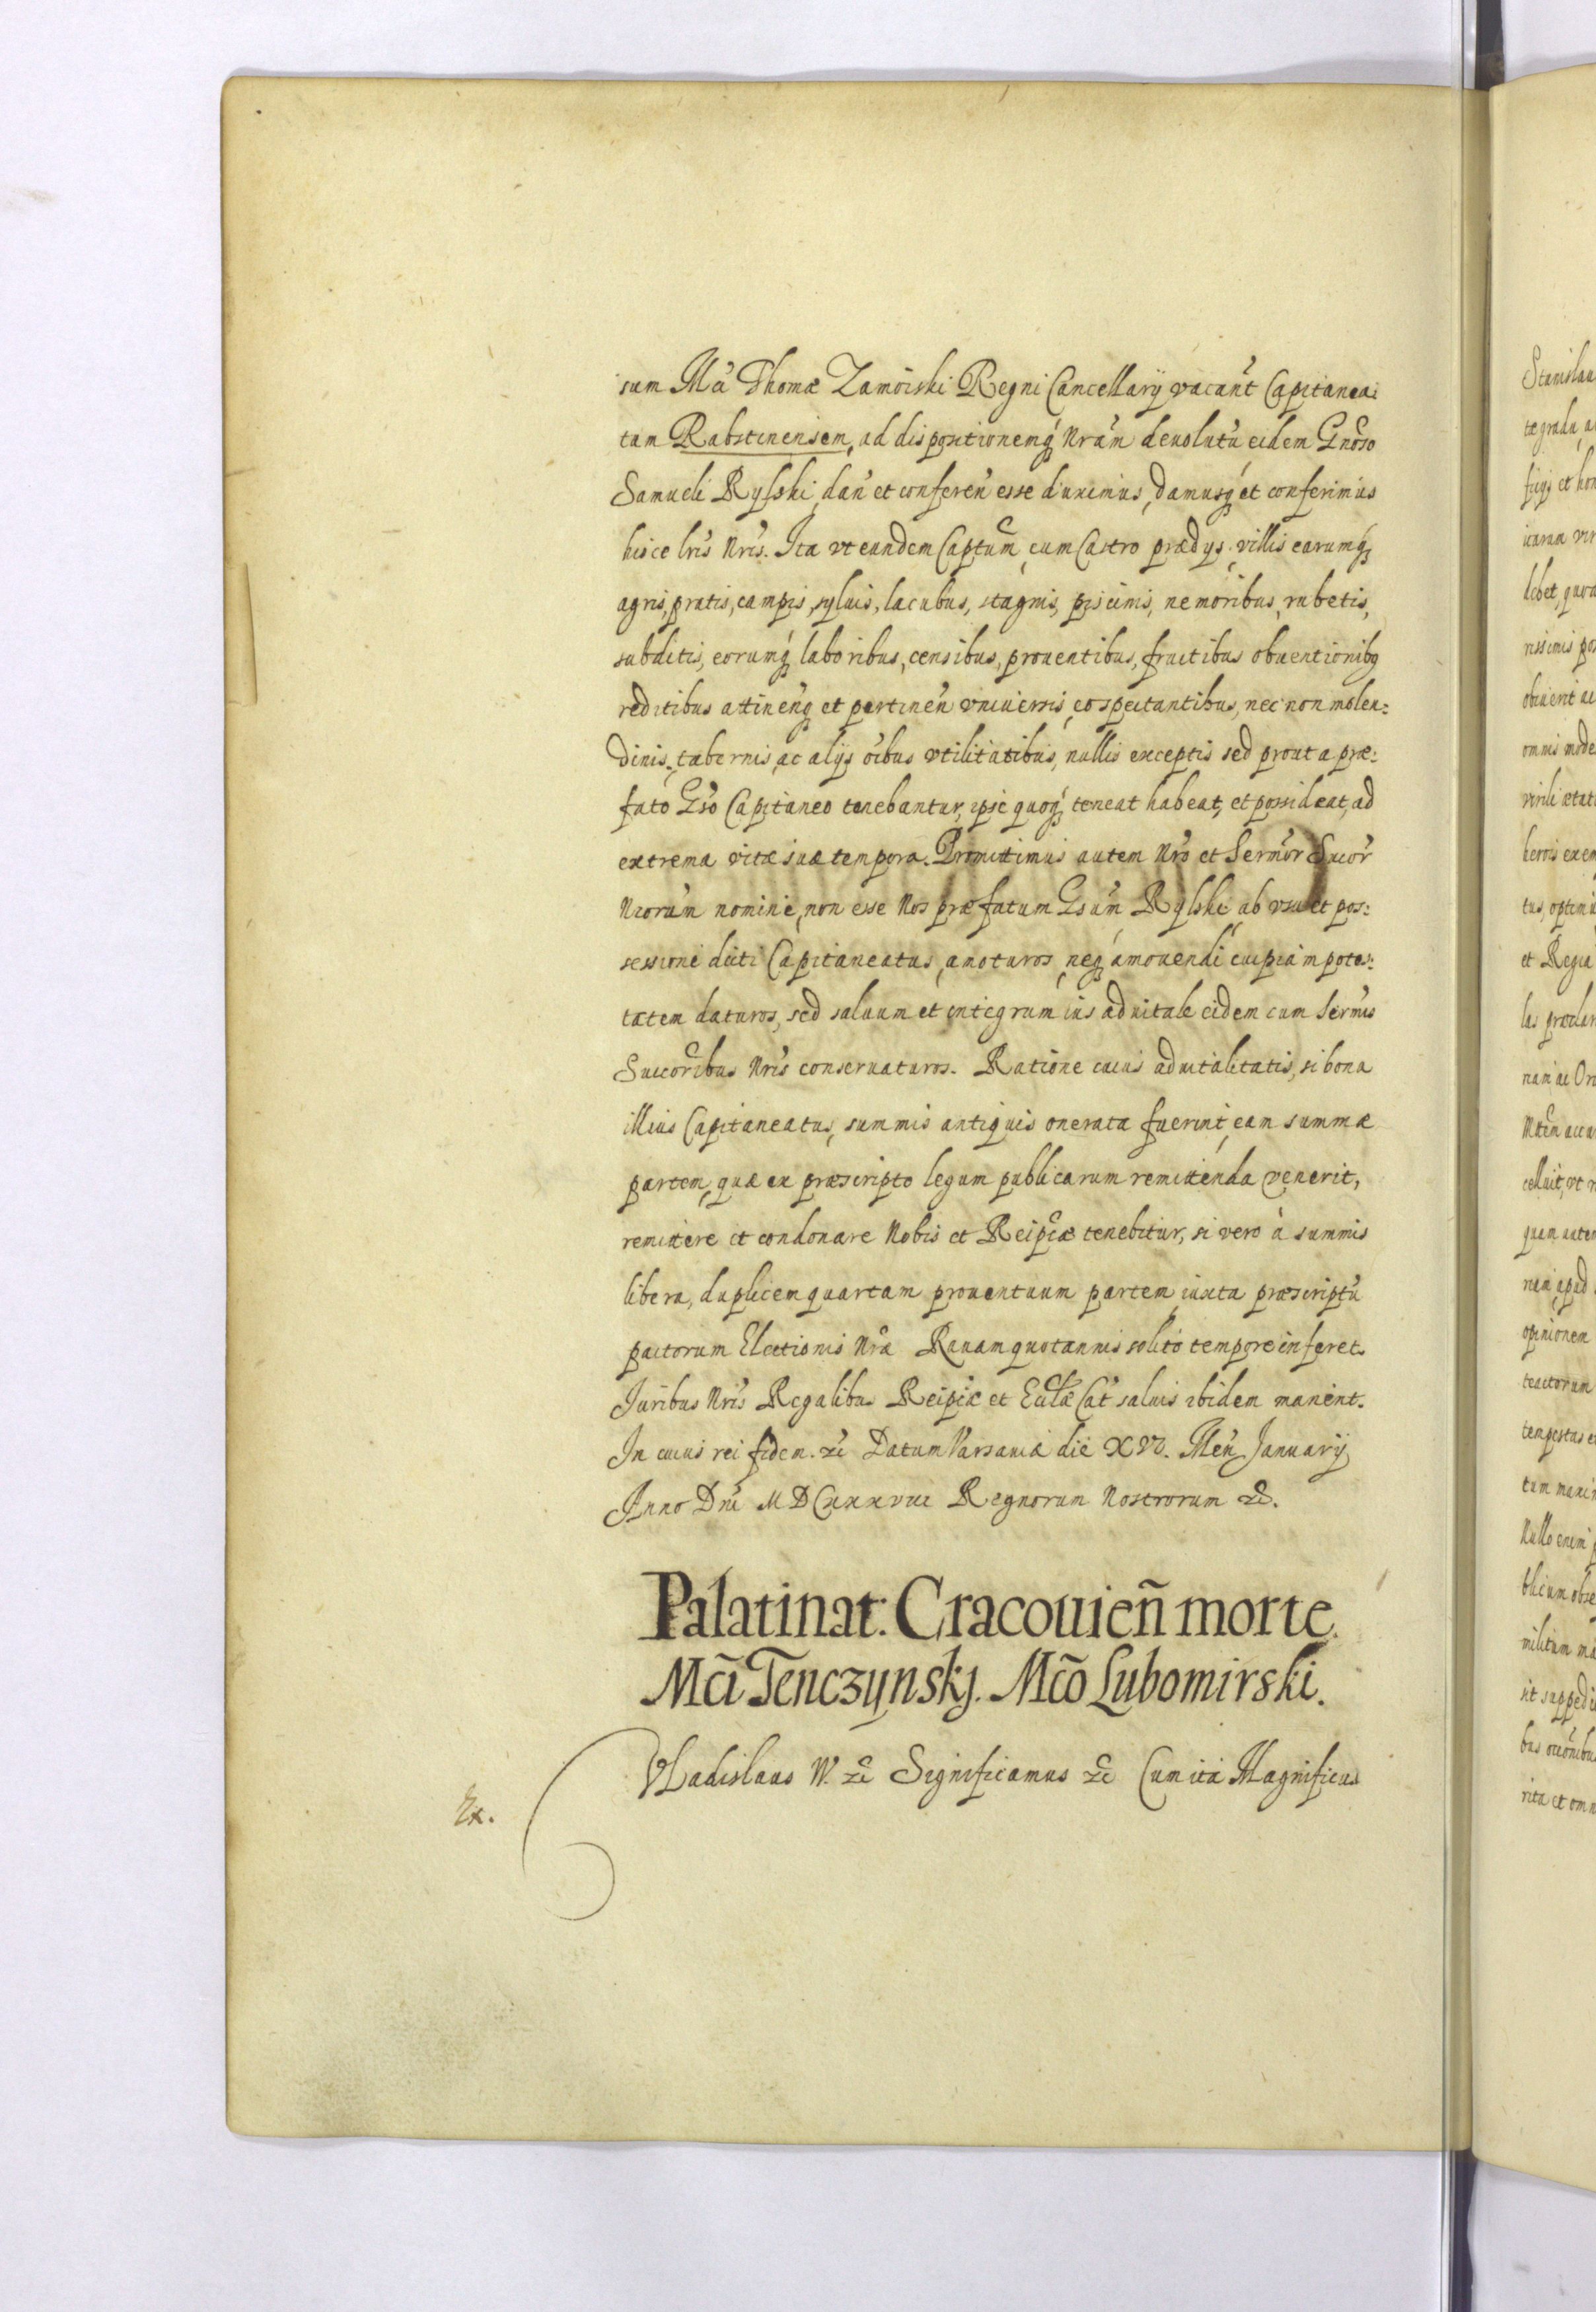 sum Mci Thomæ Zamoiski Regni Cancellarÿ vacañt Capitanea:
tum Rabstinensem, ad dispositionemq́ Nrãm deuolutũ eidem Gnõso
Samueli Rylski, dañ et conferen̄ esse duximus, damusq́ et conferimus
hisce lr̃is Nr̃is. Ita vt eundem Captum̃, cum Castro prædÿs, villis earumq́
agris, pratis, campis, syluis, lacubus, stagnis, piscinis, nemoribus, rubetis,
subditis, eorumq́ laboribus, censibus, prouentibus, fructibus obuentionibq
reditibus attineñq et pertineñ vniuersis, eo spectantibus, nec non molen:
dinis, tabernis, ac alÿs oĩbus vtilitatibus, nullis exceptis sed prout a præ:
fato Gs̃o Capitaneo tenebantur, ipse quoq́ teneat habeat, et possideat, ad
extrema vitæ suæ tempora. Promittimus autem Nr̃o et Serm̃or Sucor̃
Nrorum̃ nomine, non esse Nos præfatum Gsum̃ Rylski, ab vsu et pos:
sessione dicti Capitaneatus, amoturos, neq́ amouendi cuipiam potes:
tatem daturos, sed saluum et integrum ius aduitale eidem cum Serm̃is
Succor̃ibus Nr̃is conseruaturos. Ratione cuius aduitalitatis, si bona
illius Capitaneatus, summis antiquis onerata fuerint, eam summæ
partem, quæ ex præscripto legum publicarum remittenda venerit,
remittere et condonare Nobis et Reipcæ tenebitur, si vero à summis
libera, duplicem quartam prouentuum partem, iuxta præscriptũ
pactorum Electionis Nr̃æ Rauam quotannis solito tempore inferet.
Juribus Nr̃is Regalibus Reipcæ et Eclæ Cat̃ saluis ibidem manent.
In cuius rei fidem. &c̃ Datum Varsauiæ die XV. Meñ Januarÿ
Anno Dni M D C xxxviii Regnorum Nostrorum &c̃.
Palatinat: Cracouieñ morte
Mc̃i Tenczynskj. Mc̃o Lubomirski.
Vladislaus IV. &c̃ Significamus &c̃ Cum ita Magnificus
Ex.